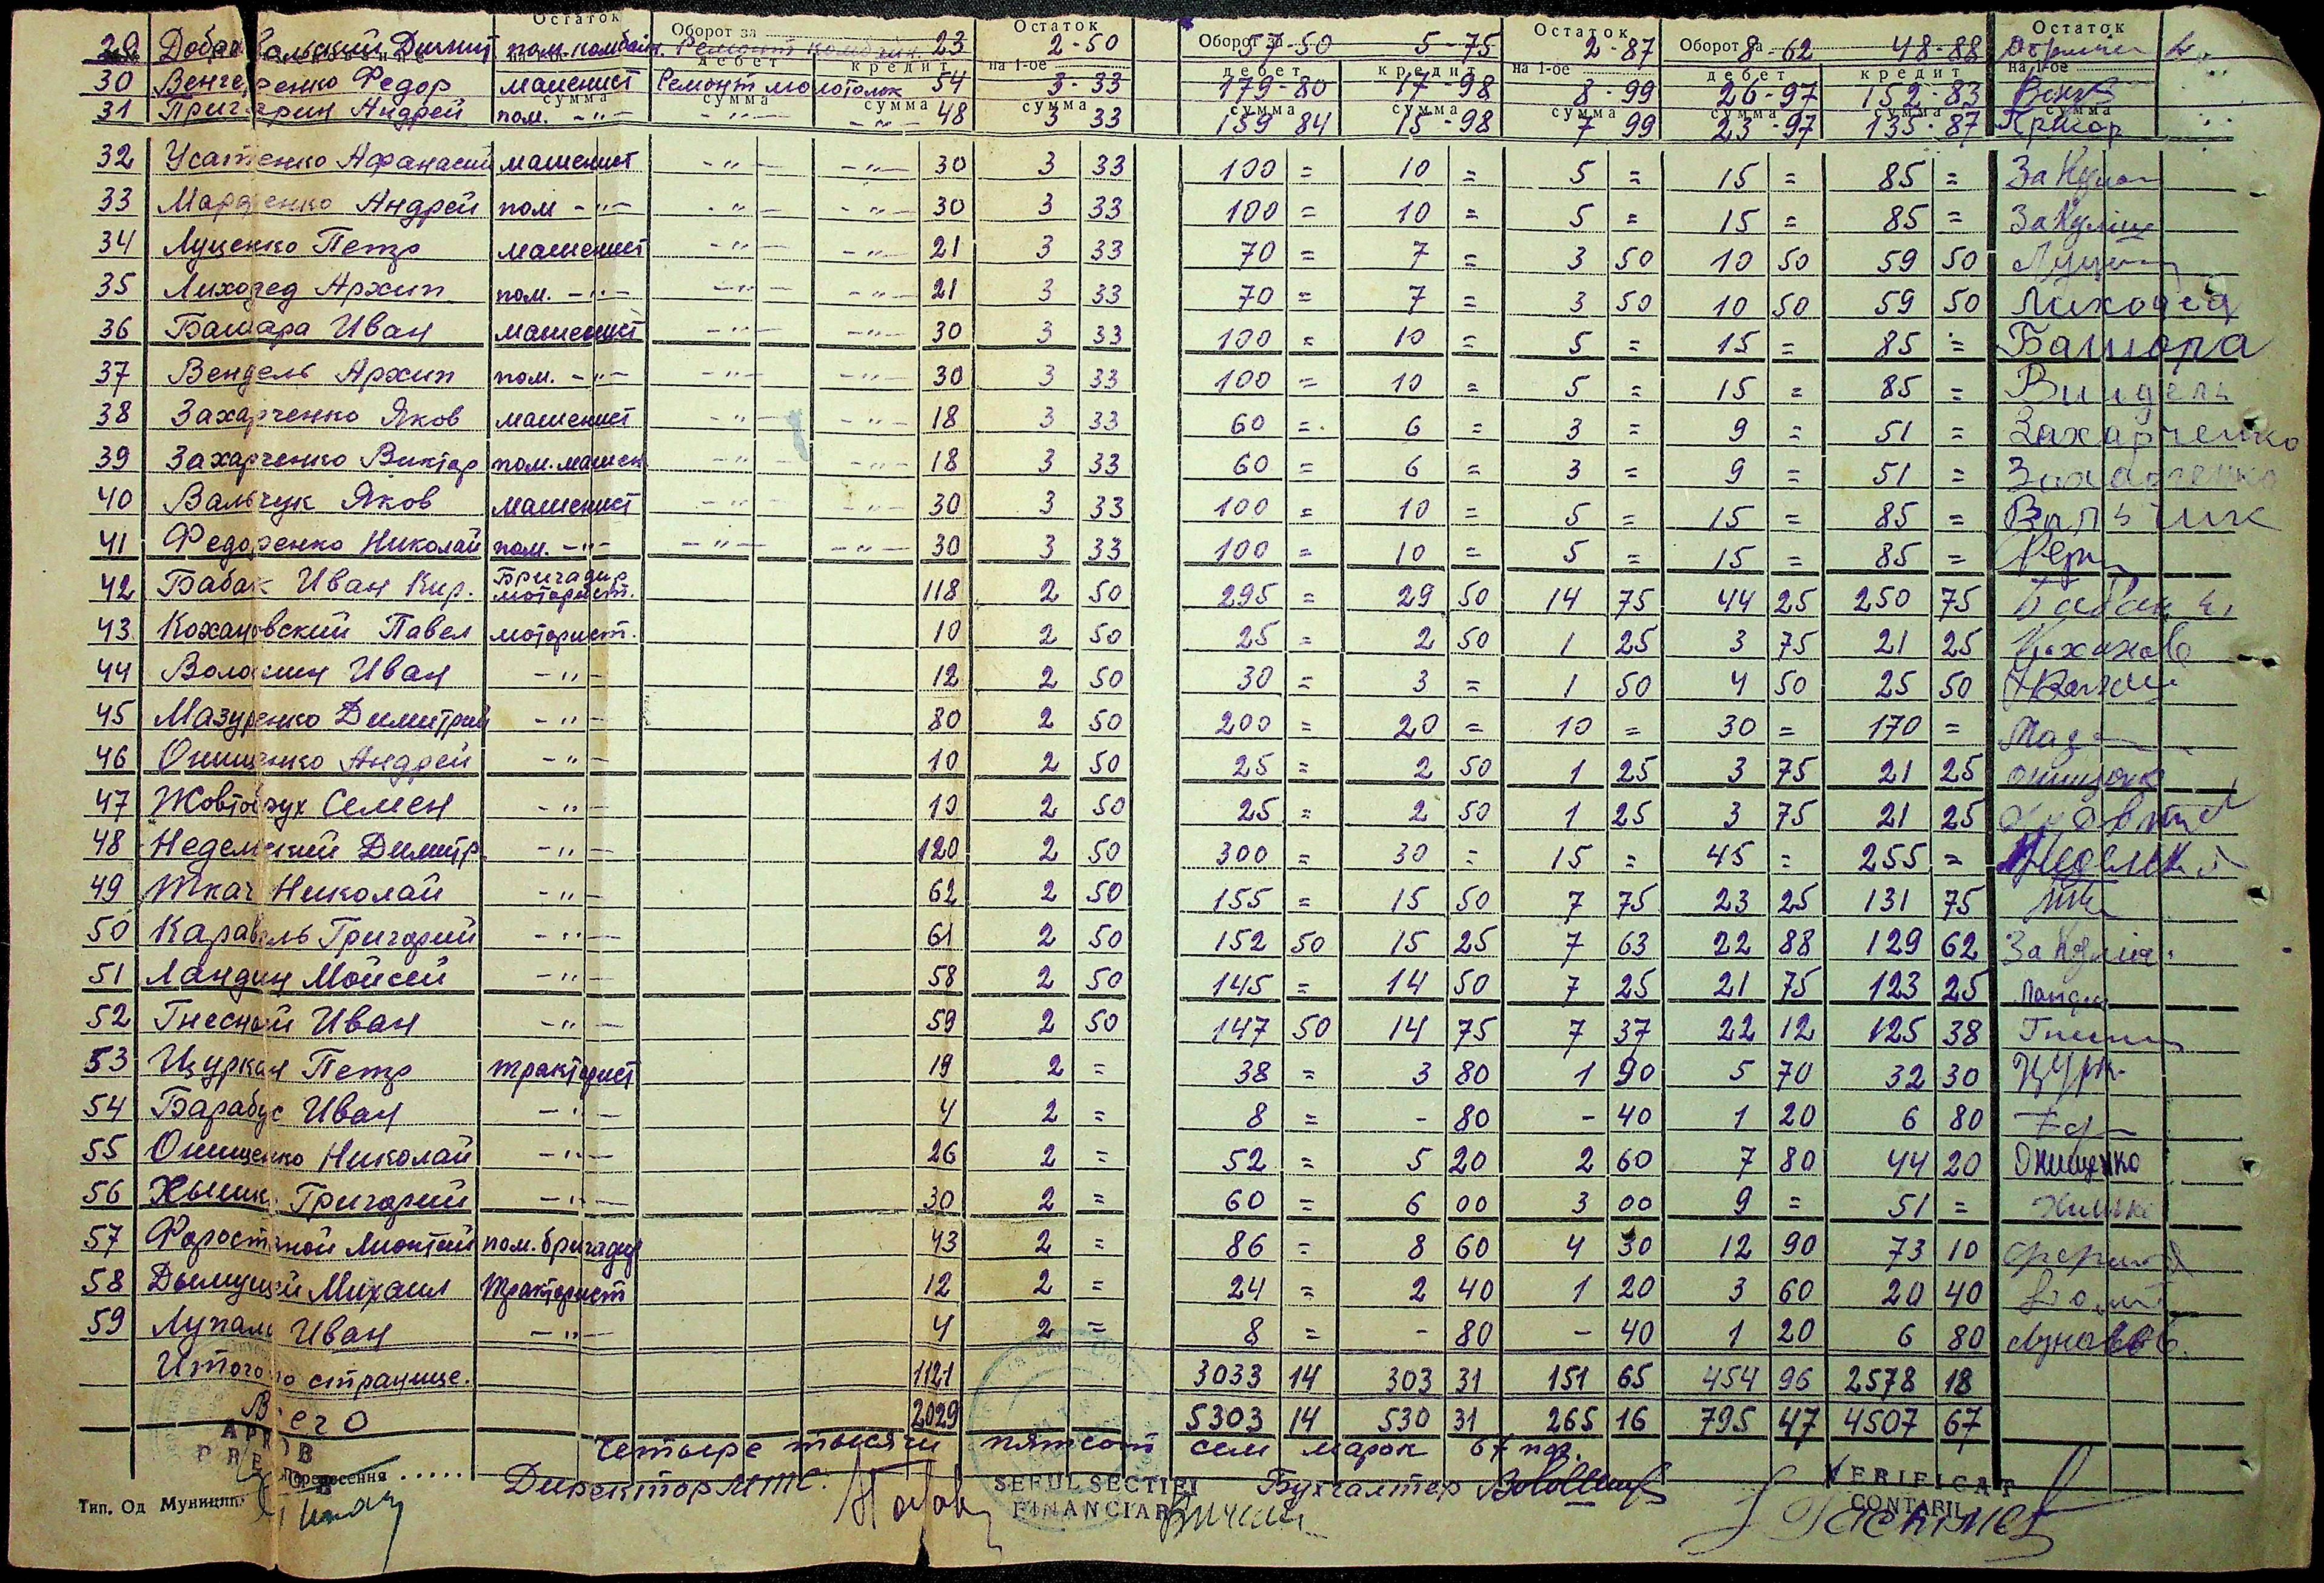 Остаток Оборот за Остаток Оборот за Остаток Оборот за Остаток
29 Димит пом. комбайн. Ремонт комбайн. 23 2-50 57-50 5-75 2-87 8-62 48-88
на 1-ое дебет кредит на 1-ое дебет кредит на 1-ое дебет кредит на 1-ое
30 Венгеренко Федор машенист Ремонт молотолок 54 3-33 179-80 17-98 8-99 26-97 152-83
сумма сумма сумма сумма сумма сумма сумма сумма сумма сумма
31 Пригарин Андрей пом. -"- -"- -"- 48 3 33 159 84 15-98 7 99 23-97 135-87 Пригор
32 Усатенко Афанасий машенист -"- -"- 30 3 33 100 = 10 = 5 = 15 = 85 =
33 Андрей пом -"- -"- -"- 30 3 33 100 = 10 = 5 = 15 = 85 =
34 Луценко Петр машенист -"- -"- 21 3 33 70 = 7 = 3 50 10 50 59 50
35 Лиходед Архип пом. -"- -"- -"- 21 3 33 70 = 7 = 3 50 10 50 59 50 Лиходед
36 Башара Иван машенист -"- -"- 30 3 33 100 = 10 = 5 = 15 = 85 = Башора
37 Вендель Архип пом. -"- -"- -"- 30 3 33 100 = 10 = 5 = 15 = 85 = Виндель
38 Захарченко Яков машенист -"- -"- 18 3 33 60 = 6 = 3 = 9 = 51 = Захарченко
39 Захарченко Виктор пом. машен -"- -"- 18 3 33 60 = 6 = 3 = 9 = 51 = Захарченко
40 Вальчук Яков машенист -"- -"- 30 3 33 100 = 10 = 5 = 15 = 85 =
41 Федоренко Николай пом. -"- -"- -"- 30 3 33 100 = 10 = 5 = 15 = 85 =
42 Бабак Иван Кир. Бригадир моторист. 118 2 50 295 = 29 50 14 75 44 25 250 75 Бабак
43 Кохановский Павел моторист. 10 2 50 25 = 2 50 1 25 3 75 21 25
44 Волошин Иван -"- 12 2 50 30 = 3 = 1 50 4 50 25 50
45 Мазуренко Димитрий -"- 80 2 50 200 = 20 = 10 = 30 = 170 = Маз
46 Онищенко Андрей -"- 10 2 50 25 = 2 50 1 25 3 75 21 25
47 Жовтобрух Семен -"- 10 2 50 25 = 2 50 1 25 3 75 21 25
48 Димитр. -"- 120 2 50 300 = 30 = 15 = 45 = 255 =
49 Ткач Николай -"- 62 2 50 155 = 15 50 7 75 23 25 131 75
50 Каравель Григорий -"- 61 2 50 152 50 15 25 7 63 22 88 129 62
51 Ландин Мойсей -"- 58 2 50 145 = 14 50 7 25 21 75 123 25
52 Гнесный Иван -"- 59 2 50 147 50 14 75 7 37 22 12 125 38
53 Цуркан Петр тракторист 19 2 = 38 = 3 80 1 90 5 70 32 30 Цурк.
54 Барабус Иван -"- 4 2 = 8 = - 80 - 40 1 20 6 80
55 Онищенко Николай -"- 26 2 = 52 = 5 20 2 60 7 80 44 20 Онищенко
56 Григорий -"- 30 2 = 60 = 6 00 3 00 9 = 51 =
57 пом. бригадир 43 2 = 86 = 8 60 4 30 12 90 73 10
58 Михаил Тракторист 12 2 = 24 = 2 40 1 20 3 60 20 40
59 Иван -"- 4 2 = 8 = - 80 - 40 1 20 6 80
Итого по странице. 1121 3033 14 303 31 151 65 454 96 2578 18
Всего 2029 5303 14 530 31 265 16 795 47 4507 67
четыре тысячи пятсот сем марок 67 пф.
APROB
PRE
Перенесения . . . . .
Директор МТС.
SEFUL SECTIEI
FINANCIAR
Бухгалтер
VERIFICAT
CONTABIL
Тип. Од Муницип.